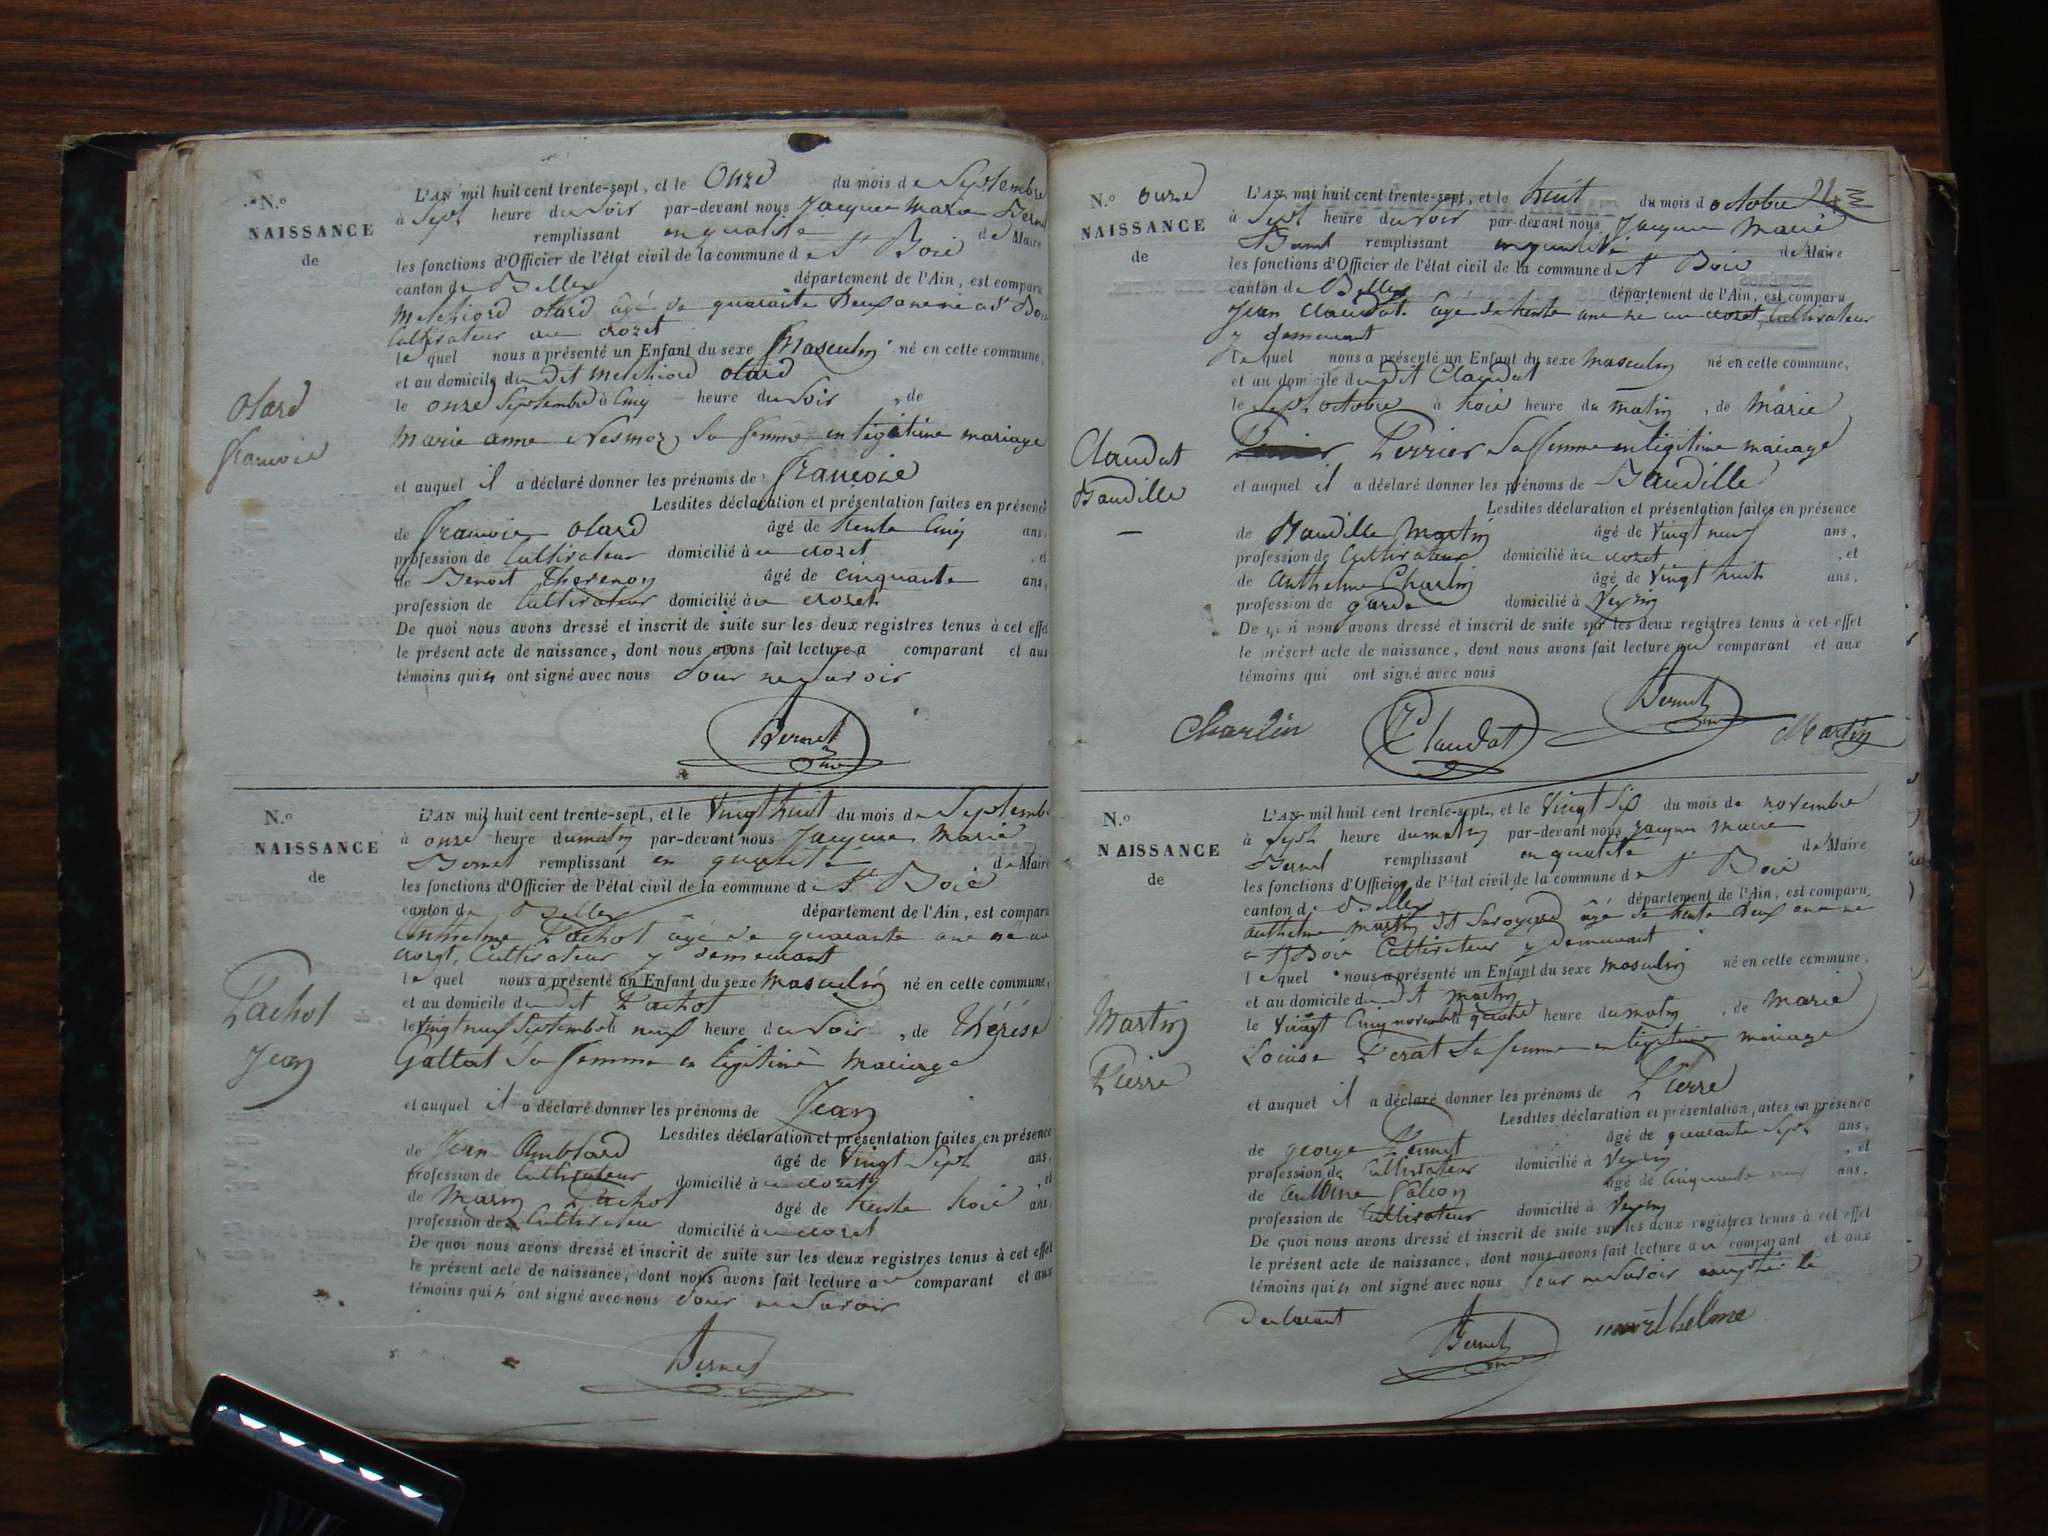 N.o
NAISSANCE
de
Olard
francois
L'AN mil huit cent trente-sept, et le onze du mois de Septembre
à Sept heure du Soir par-devant nous Jacques Marie Bernet
remplissant en qualité de Maire
les fonctions d'Officier de l'état civil de la commune de St Bois
canton de Belley département de l'Ain, est comparu
Melchiord olard âgé de quarante deux ans né a St Bois
Cultivateur au crozet
le quel nous a présenté un Enfant du sexe Masculin né en cette commune,
et au domicile du dit Melchiord olard
le onze Septembre à Cinq heure du Soir, de
Marie anne Nesmoz Sa femme en légitime mariage
et auquel il a déclaré donner les prénoms de francois
Lesdites déclaration et présentation faites en présence
de francois olard âgé de trente Cinq ans,
profession de Cultivateur domicilié à u crozet, et
de Benoit Thevenon âgé de cinquante ans,
profession de Cultivateur domicilié à u crozet
De quoi nous avons dressé et inscrit de suite sur les deux registres tenus à cet effet
le présent acte de naissance, dont nous avons fait lecture a comparant et aux
témoins qui n ont signé avec nous pour ne Savoir
Bernet
N.o
NAISSANCE
de
Pachot
Jean
L'AN mil huit cent trente-sept, et le vingt huit du mois de Septembre
à onze heure du matin par-devant nous Jacques Marie
Bernet remplissant en qualité de Maire
les fonctions d'Officier de l'état civil de la commune de St Bois
canton de Belley département de l'Ain, est comparu
Anthelme Pachot âgé de quarante ans né au
crozet, Cultivateur y demeurant
le quel nous a présenté un Enfant du sexe masculin né en cette commune,
et au domicile du dit Pachot
le vingt neuf Septembre à neuf heure du Soir, de thérèse
Gallat Sa femme en légitime mariage
et auquel il a déclaré donner les prénoms de Jean
Lesdites déclaration et présentation faites en présence
de Jean Amblard âgé de vingt Sept ans,
profession de Cultivateur domicilié à u crozet, et
de Marin Pachot âgé de trente trois ans,
profession de Cultivateur domicilié à u crozet
De quoi nous avons dressé et inscrit de suite sur les deux registres tenus à cet effet
le présent acte de naissance, dont nous avons fait lecture au comparant et aux
témoins qui n' ont signé avec nous pour ne Savoir
Bernet
24
N.o onze
NAISSANCE
de
Claudat
Baudille
L'AN mil huit cent trente-sept, et le huit du mois d octobre
à Sept heure du Soir par-devant nous Jacques Marie
Bernet remplissant en qualité de Maire
les fonctions d'Officier de l'état civil de la commune de St Bois
canton de Belley département de l'Ain, est comparu
Jean Claudat âgé de trente ans né au crozet, Cultivateur
y demeurant
le quel nous a présenté un Enfant du sexe masculin né en cette commune,
et au domicile du dit Claudat
le Sept octobre à trois heure du matin, de Marie
Perrier Sa femme en légitime mariage
et auquel il a déclaré donner les prénoms de Baudille
Lesdites déclaration et présentation faites en présence
de Baudille Martin âgé de vingt neuf ans,
profession de Cultivateur domicilié à u crozet, et
de Anthelme Charlin âgé de vingt huit ans,
profession de garde domicilié à Veyrin
De quoi nous avons dressé et inscrit de suite sur les deux registres tenus à cet effet
le présent acte de naissance, dont nous avons fait lecture au comparant et aux
témoins qui ont signé avec nous
Charlin Claudat Bernet Martin
N.o
NAISSANCE
de
Martin
Pierre
L'AN mil huit cent trente-sept, et le vingt Six du mois de novembre
à Sept heure du matin par-devant nous Jacques Marie
Bernet remplissant en qualité de Maire
les fonctions d'Officier de l'état civil de la commune de St Bois
canton de Belley département de l'Ain, est comparu
anthelme Martin dit Savoyard âgé de trente deux ans né
a St Bois Cultivateur y demeurant
le quel nous a présenté un Enfant du sexe masculin né en cette commune,
et au domicile du dit Martin
le vingt Cinq novembre à quatre heure du matin, de Marie
Louise Perat Sa femme en légitime mariage
et auquel il a déclaré donner les prénoms de Pierre
Lesdites déclaration et présentation faites en présence
de george âgé de quarante Sept ans,
profession de Cultivateur domicilié à Veyrin, et
de antoine falcon âgé de Cinquante neuf ans,
profession de Cultivateur domicilié à Veyrin
De quoi nous avons dressé et inscrit de suite sur les deux registres tenus à cet effet
le présent acte de naissance, dont nous avons fait lecture au comparant et aux
témoins qui n ont signé avec nous pour ne Savoir excepté le
declarant
Bernet